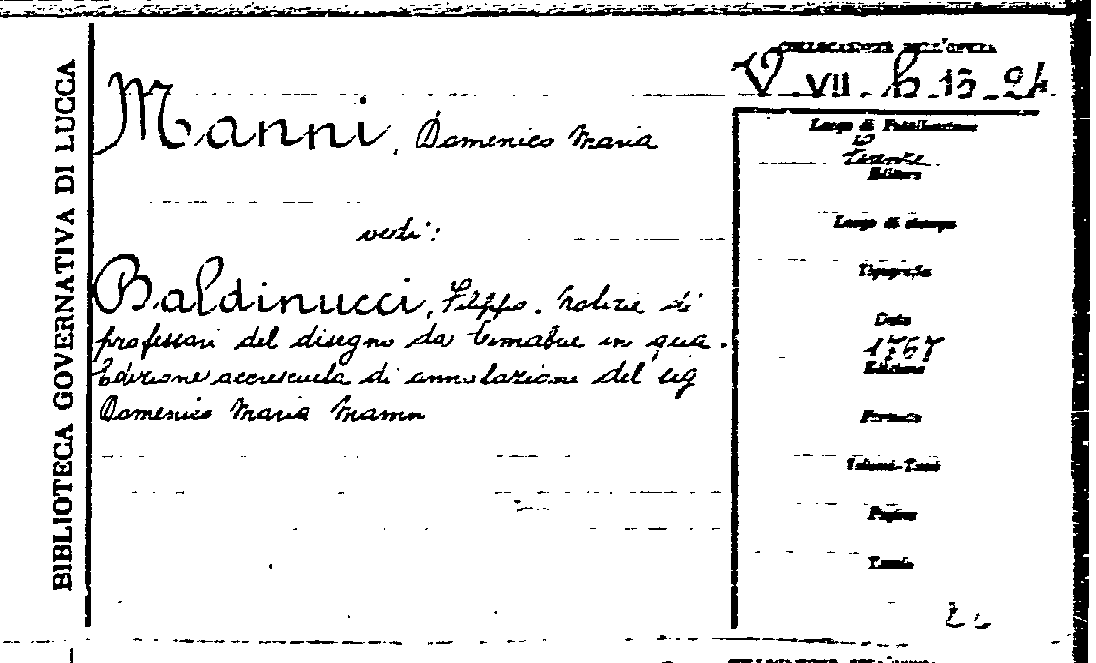 BIBLIOTECA GOVERNATIVA DI LUCCA
COLLOCAZIONE DELL'OPERA
V. VII. b. 13-24
Manni, Domenico Maria
vedi:
Baldinucci, Filippo. Notizie di
professori del disegno da Cimabue in qua.
Edizione accresciuta di annotazioni del sig
Domenico Maria Manni
Luogo di Pubblicazione
Firenze
Editore
Luogo di stampa
Tipografia
Data
1767
Edizione
Formato
Volumi-Tomi
Pagine
Tavole